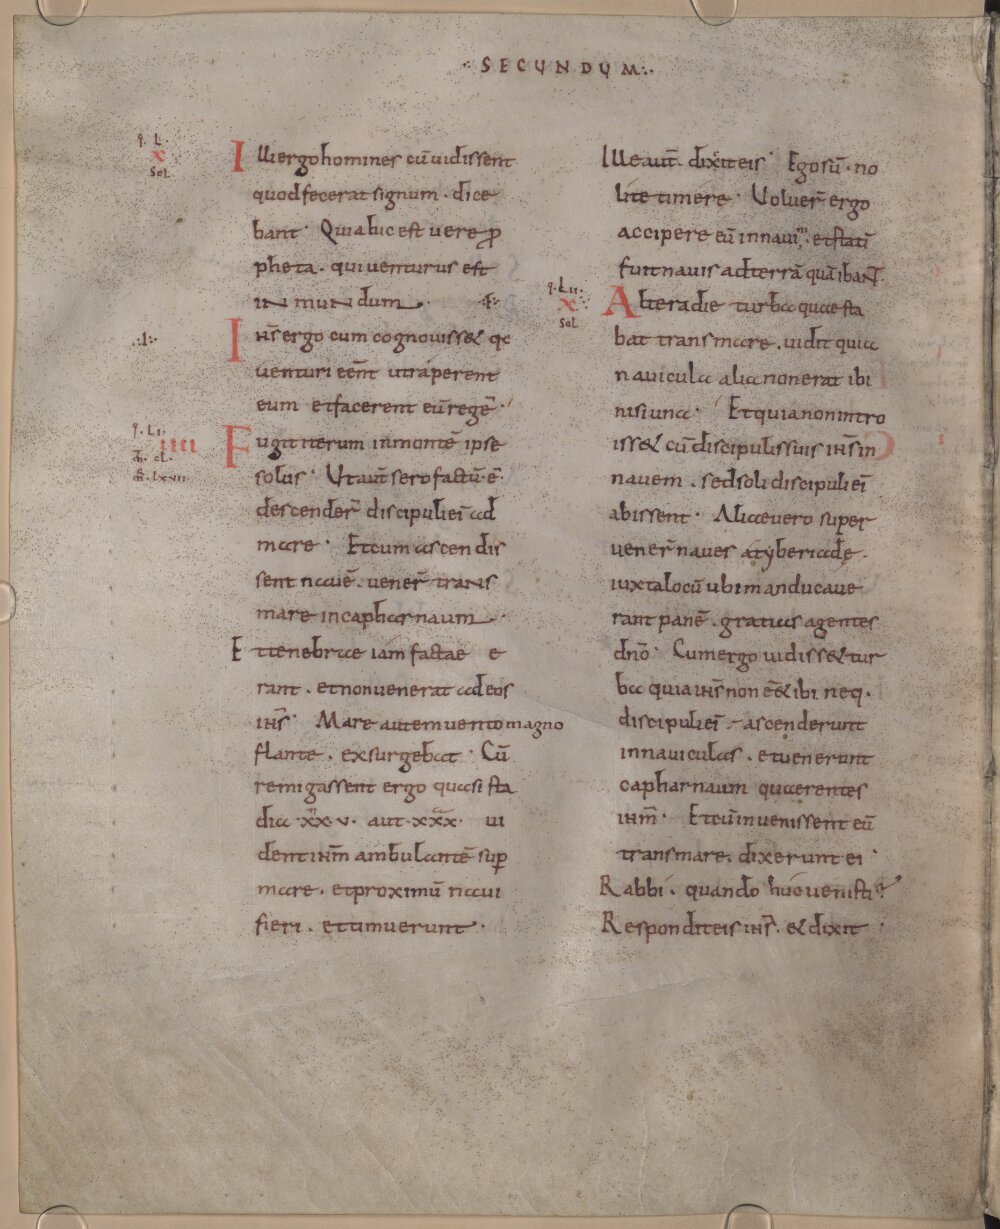 ·: SECUNDUM :·
q. L.
x
Sol
Illi ergo homines cū uidissent
quod fecerat signum · dice
bant · Quia hic est uere ꝓ
pheta . qui uenturus est
in mundum .
·I·
Ihs̄ ergo cum cognouiss& qa
uenturi eēnt ut ráperent
eum et facerent eū regē ·
q. Li.
iiii
Fugit iterum in montē ipse
solus · Ut aūt sero factū·ē·
descender̄ discipuli ei ad
mare · Et cum ascendis
sent nauē . uener̄ trans
mare in capharnaum .
Et tenebrae iam factae e
rant . et non uenerat ad eos
ihs̄ · Mare autem uento magno
flante . exsurgebat · Cū
remigassent ergo quasi sta
dia ·xx·v· aut ·xxx· ui
dent ihm̄ ambulantē suꝑ
mare . et proximū naui
fieri . et timuerunt ·
Ille aut̄ dixit eis · Ego sū · no
lite timere · Uoluer̄ ergo
accipere eū in nauim . et statī
fuit nauis ad terrā quā ibant
q. Lii.
x
Sol
Altera die turba quae sta
bat trans mare . uidit quia
nauicula alia non erat ibi
nisi una · Et quia non intro
iss& cū discipulis suis ihs̄ in
nauem . sed soli discipuli eī
abissent · Aliae uero super
uener̄ naues a tyberiade .
iuxta locū ubi manducaue
rant panē . gratias agentes
dnō · Cum ergo uidiss& tur
ba quia ihs̄ non ēē& ibi neq.
discipuli eī ascenderunt
in nauiculas . et uenerunt
capharnaum quaerentes
ihm̄ · Et cū inuenissent eū
trans mare . dixerunt ei ·
Rabbi . quando huc uenisti?
Respondit eis ihs̄ . & dixit ·